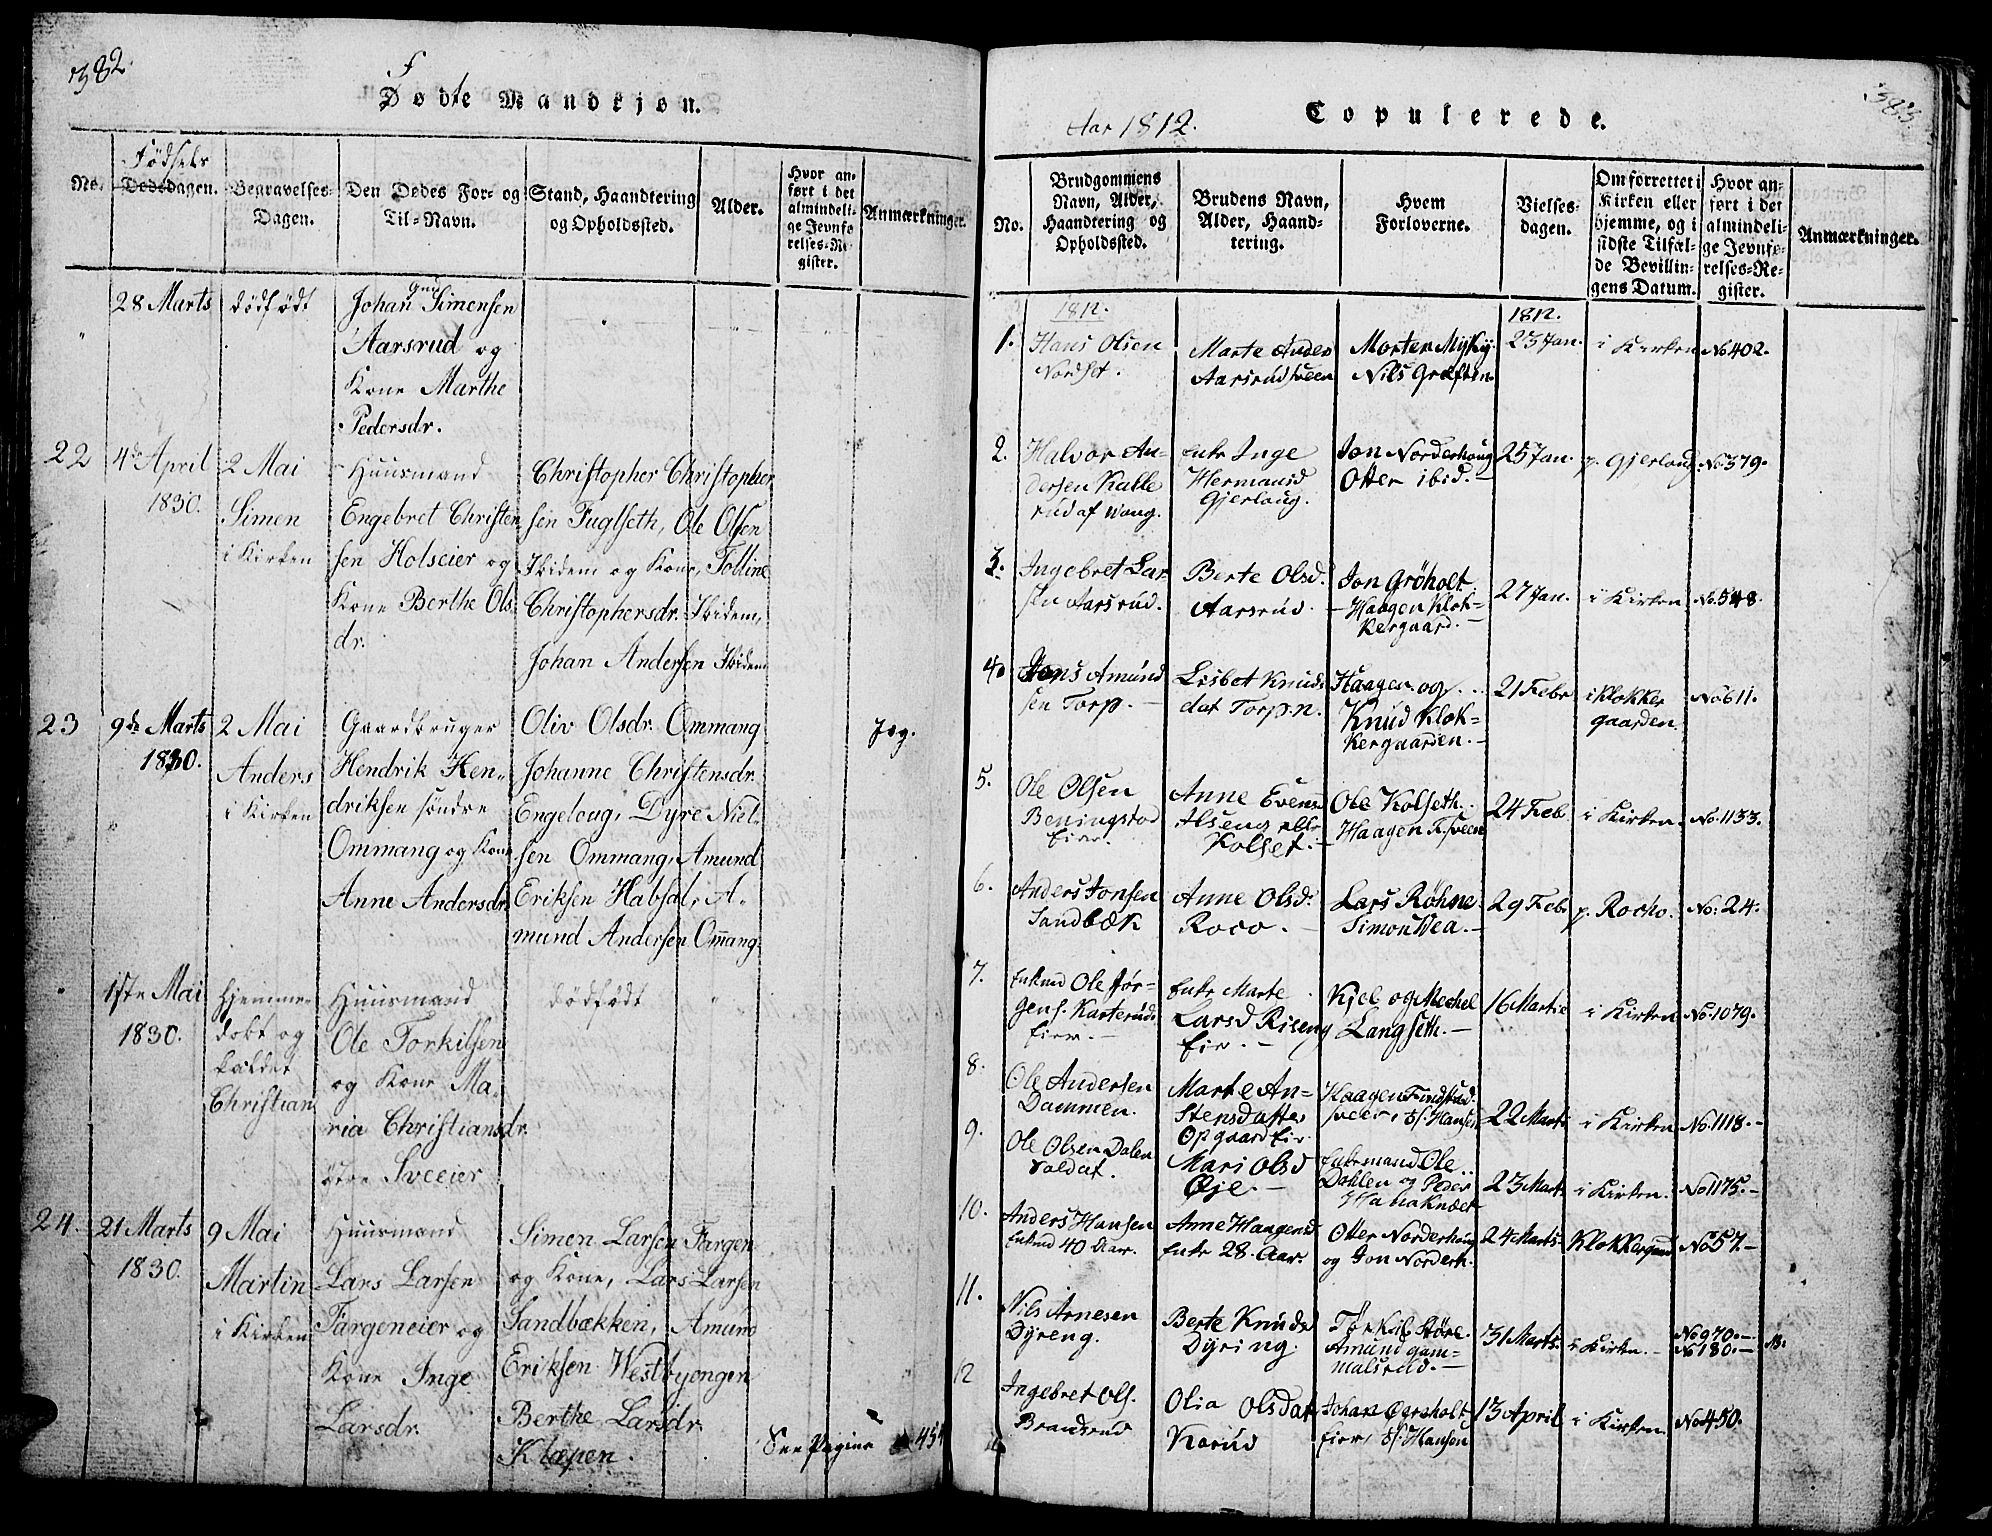 382.
F
Dödte Mandkjøn.
No.
Födsels
Dødsdagen.
Begravelses-
Dagen.
Den Dødes For- og
Til-Navn.
Stand, Haandtering
og Opholdssted.
Alder.
Hvor an-
ført i det
almindeli-
ge Jevnfø-
relses-Re-
gister.
Anmærkninger.
28 Marts
dödfödt
Johan Simensen
Aarsrud og
Kone Marthe
Pedersdr.
22
4de April
1830.
2 Mai
Simen
i Kirken
Huusmand
Engebret Christen
sen Holseier og
Kone Berthe Ols
dr.
Christopher Christopher
sen Fuglseth, Ole Olsen
Ibidem og Kone, Tolline
Christophersdr. Ibidem,
Johan Andersen Ibidem
23
9de Marts
1830.
2 Mai
Anders
i Kirken
Gaardbruger
Hendrik Hen-
driksen söndre
Ommang og Kone
Anne Andersdr.
Oliv Olsdr. Ommang
Johanne Christensdr.
Engeloug, Dyre Niel-
sen Ommang, Amund
Eriksen Habsal, A-
mund Andersen Omang
1ste Mai
1830.
hjemme-
dobt og
kaldet
Christian
Huusmand
Ole Torkilsen
og Kone Ma-
ria Christiansdr.
östre Sveeier
dödfödt
24.
21 Marts
1830.
9 Mai
Martin
i Kirken
Huusmand
Lars Larsen
Fargeneier og
Kone Inge
Larsdr.
Simen Larsen Fargen
og Kone, Lars Larsen
Sandbækken, Amund
Eriksen Westbyengen
Berthe Larsdr
Klæpen.
See Pagina 454
383.
Aar 1812.
Copulerede.
No.
Brudgommens
Navn, Alder,
Haandtering og
Opholdssted.
Brudens Navn,
Alder, Haand-
tering.
Hvem
Forloverne.
Vielses-
dagen.
Om forrettet i
Kirken eller
hjemme, og i
sidste Tilfæl-
de Bevillin-
gens Datum.
Hvor an-
ført i det
almindeli-
ge Jevnfø-
relses-Re-
gister.
Anmærkninger.
1812.
1812.
1.
Hans Olsen
Nordset.
Marte Anders
Aarsrudsveen
Morten Myhr
Nils Græften
23 Jan.
i Kirken
No 402.
2.
Halvor An-
dersen Kalle
rud af Vang.
Enke Inge
Hermansd
Gjerloug.
Jon Norderhoug
Otter ibid.
25 Jan.
p. Gjerloug
No 379.
3.
Ingebret Lar-
sen Aarsrud.
Berte Olsd.
Aarsrud.
Jon Gröholt
Haagen Klok-
kergaard.
27 Jan.
i Kirken
No. 548.
4.
Jens Amund
sen Torp.
Lisbet Knuds
dat Torp.n.
Haagen og
Knud Klok-
kergaarden.
21 Febr
i Klokker
gaarden
No 611.
5.
Ole Olsen
Beningstad
Eier.
Anne Evens
Alseng eller
Kolset.
Ole Kolseth.
Haagen F.sveen
24 Feb
i Kirken
No. 1133.
6.
Anders Jonsen
Sandbæk
Anne Olsd.
Roco.
Lars Röhne
Simon Wea.
29 Febr
p. Rocho.
No: 24.
7.
Enkmd Ole Jør-
gens. Karterud
Eier.
Enke Marte
Larsd Riseng
Eie.
Kjel og Mechel
Langseth.
16 Martie
i Kirken
No. 1079.
8.
Ole Andersen
Dammen.
Marte An-
stensdatter
Opgaard Eie
Haagen Findstad
sveer, Hansen
22 Marts
i Kirken
No. 1118.
9.
Ole Olsen Dalen
Soldat.
Mari Olsd
Öje.
Enkemand Ole
Dahlen og Peder
23 Marts
i Kirken.
No 1175.
10.
Anders Hansen
Enkmd 40 Aar.
Anne Haagensd
Enke 28. Aar.
Otter Norderhoug
og Jon Norderh.
24 Marts.
Klokkergaard
No 57.
11.
Nils Arnesen
Dyreng.
Berte Knudsd
Dyring.
Törkil Störe
Amund gam-
malsrud.
31 Marts.
i Kirken.
No 970.
No 180.
12
Ingebret Ols.
Brandsrud
Olia Olsdat
Korud
Johan Oersholt
Eier, Hansen
13 April
i Kirken.
No 450.